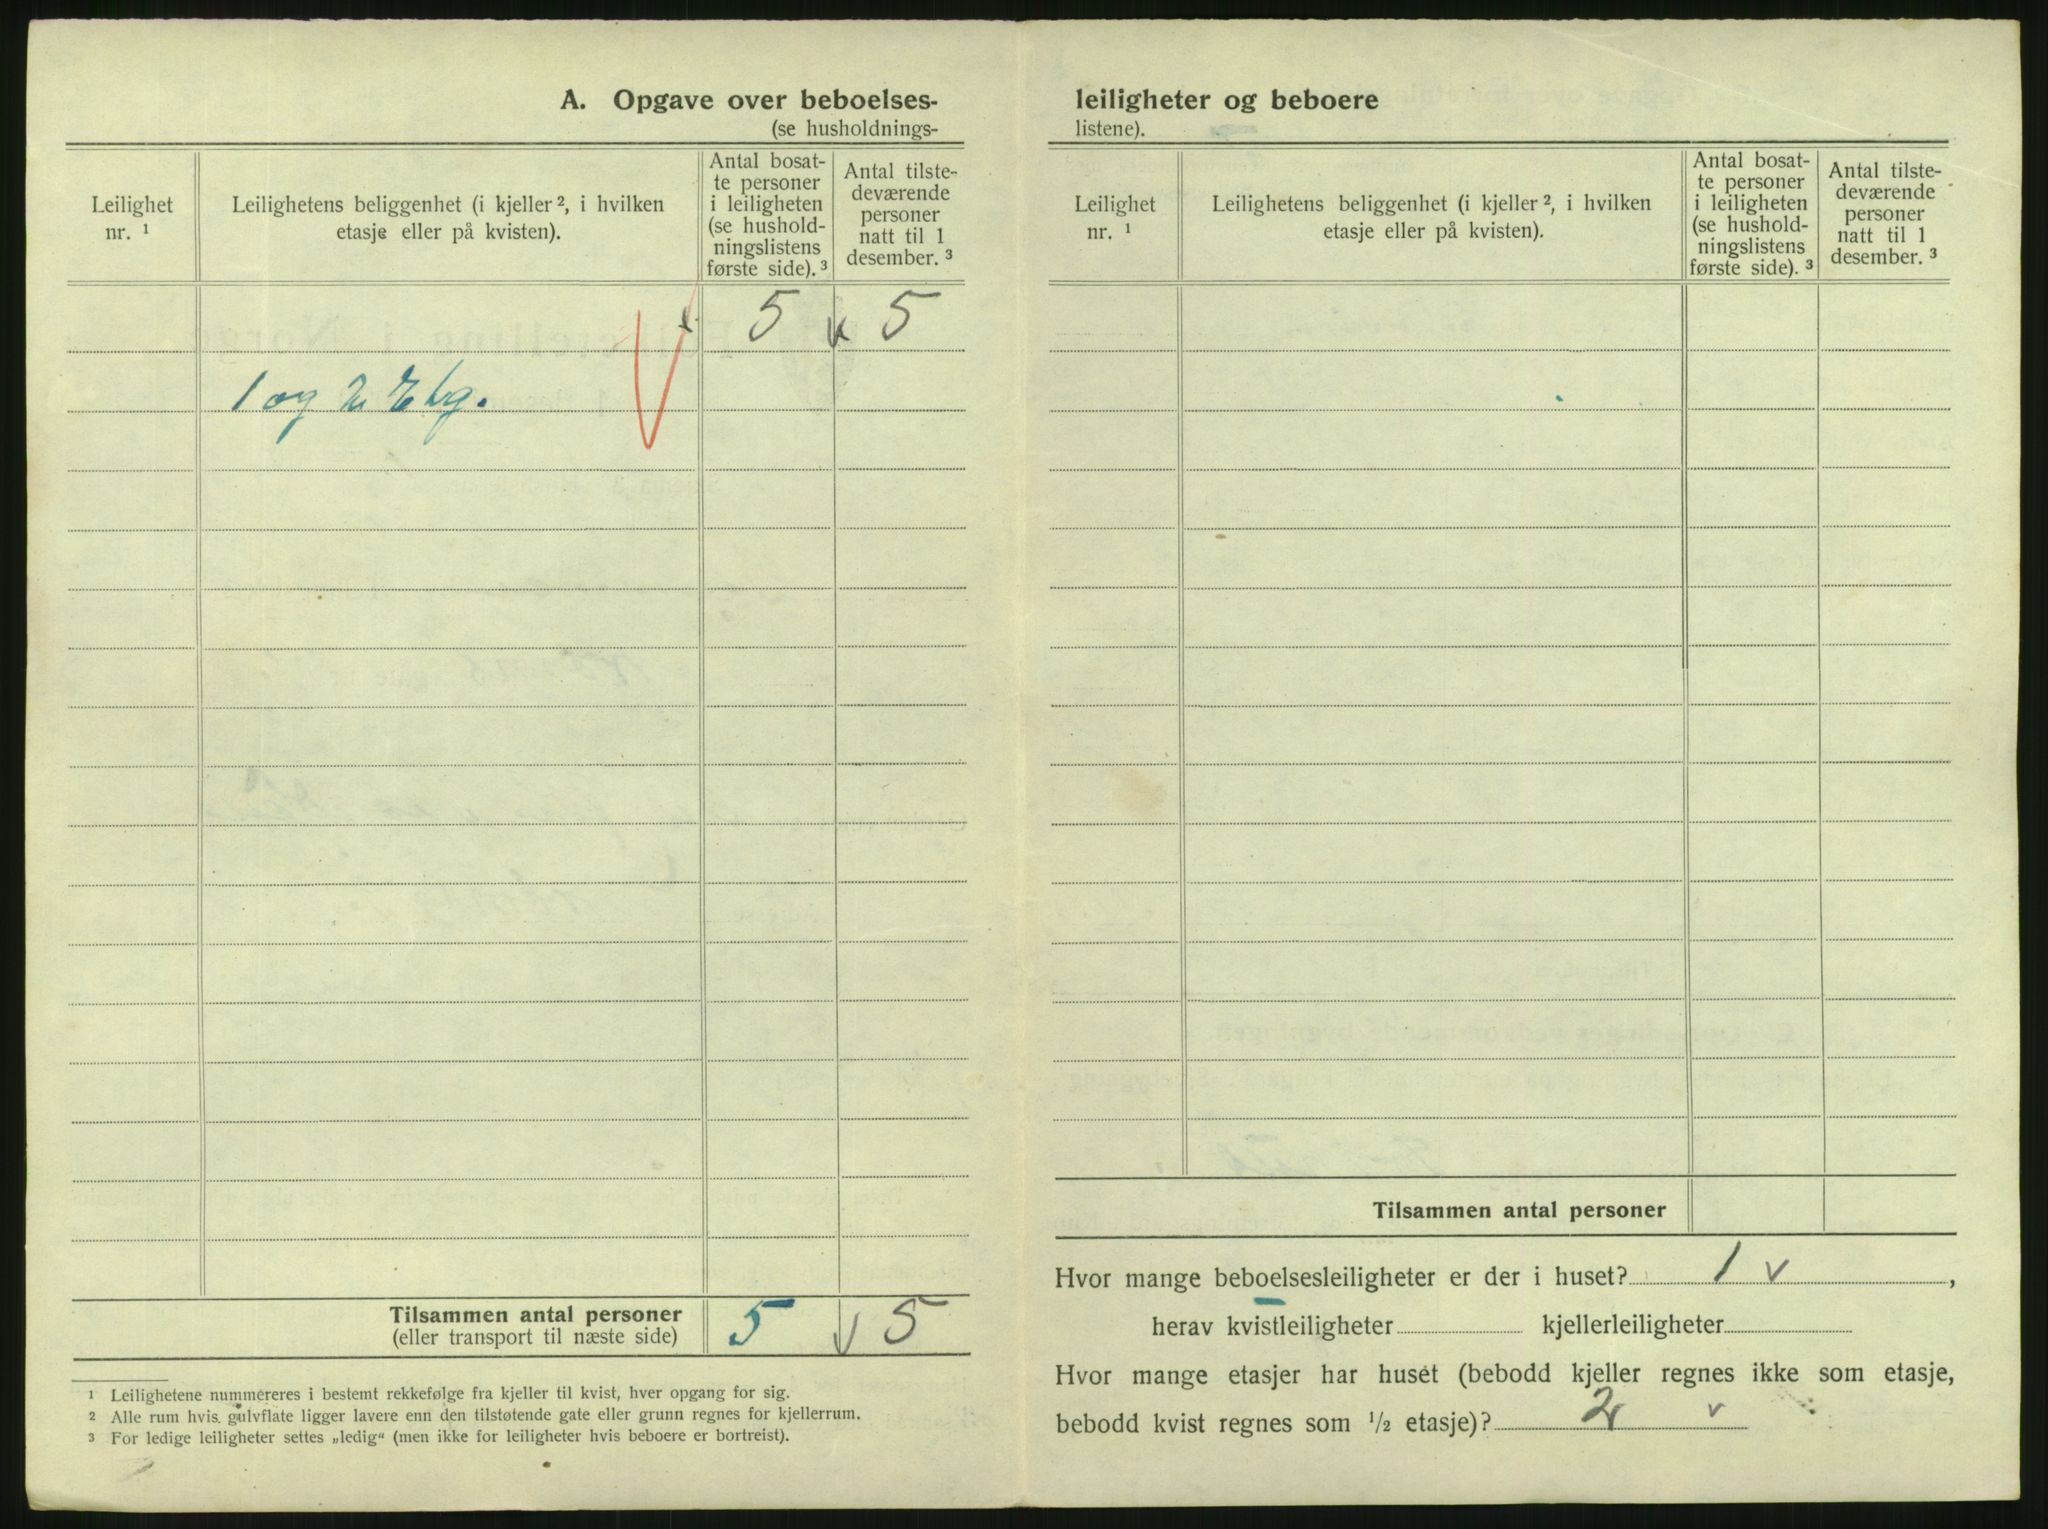 A. Opgave over beboelses-
(se husholdnings-
Leilighet
nr. ¹
Leilighetens beliggenhet (i kjeller ², i hvilken
etasje eller på kvisten).
Antal bosat-
te personer
i leiligheten
(se hushold-
ningslistens
første side). ³
Antal tilste-
deværende
personer
natt til 1
desember. ³
5 5
1 og 2 Etg.
Tilsammen antal personer
(eller transport til næste side)
5 5
¹ Leilighetene nummereres i bestemt rekkefølge fra kjeller til kvist, hver opgang for sig.
² Alle rum hvis gulvflate ligger lavere enn den tilstøtende gate eller grunn regnes for kjellerrum.
³ For ledige leiligheter settes „ledig“ (men ikke for leiligheter hvis beboere er bortreist).
leiligheter og beboere
listene).
Leilighet
nr. ¹
Leilighetens beliggenhet (i kjeller ², i hvilken
etasje eller på kvisten).
Antal bosat-
te personer
i leiligheten
(se hushold-
ningslistens
første side). ³
Antal tilste-
deværende
personer
natt til 1
desember. ³
Tilsammen antal personer
Hvor mange beboelsesleiligheter er der i huset? 1 v,
herav kvistleiligheter kjellerleiligheter
Hvor mange etasjer har huset (bebodd kjeller regnes ikke som etasje,
bebodd kvist regnes som ½ etasje)? 2 v